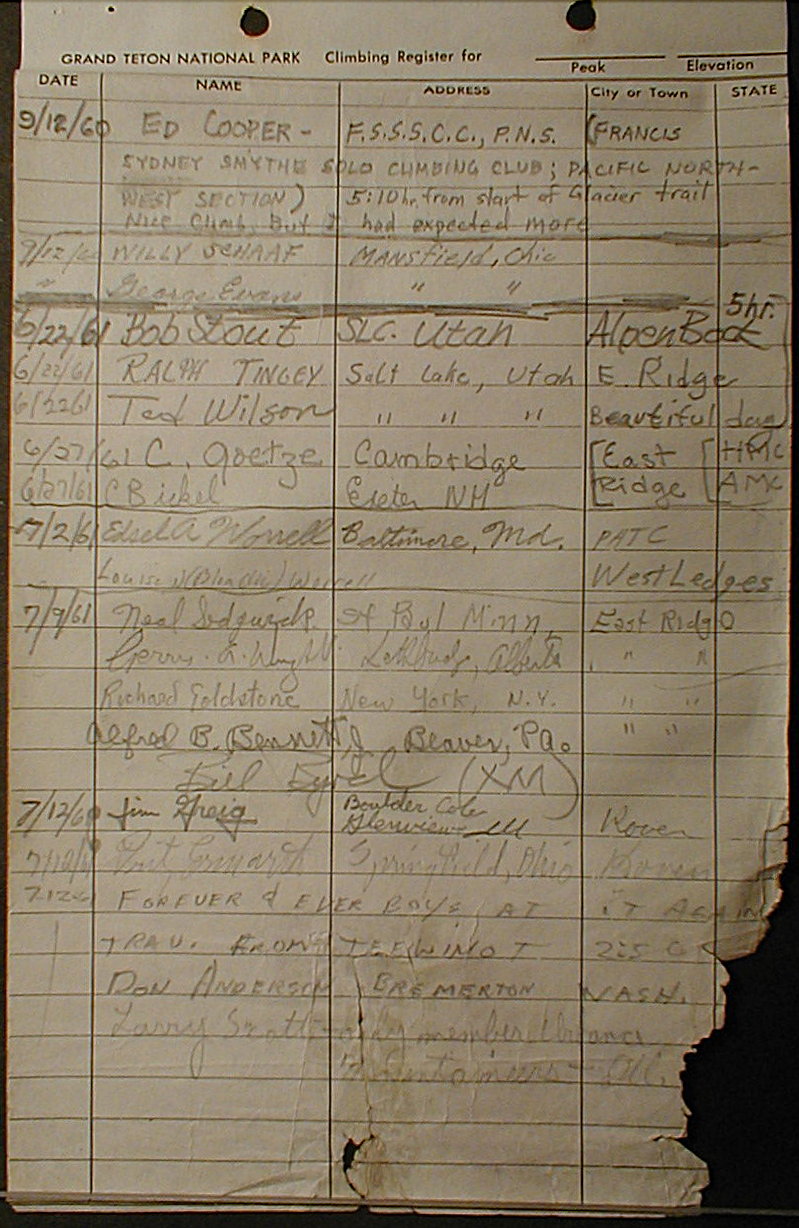 GRAND TETON NATIONAL PARK Climbing Register for
Peak Elevation
DATE NAME ADDRESS City or Town STATE
9/12/60 ED COOPER - F.S.S.S.C.C., P.N.S. (FRANCIS
SYDNEY SMYTHE SOLO CLIMBING CLUB; PACIFIC NORTH-
WEST SECTION) 5:10 hr. from start of Glacier trail
Nice Climb, But I had expected more
9/12/60 WILLY SCHAAF MANSfield, Ohio
" George Evans " "
5hr.
6/22/61 Bob Stout SLC. Utah Alpen Bock
6/22/61 RALPH TINGEY Salt Lake, Utah E. Ridge
6/22/61 Ted Wilson " " " Beautiful day
6/27/61 C. Goetze Cambridge [East [HMC
6/27/61 C Bickel Exeter NH Ridge AMC
7/2/61 Edsel A Worrell Baltimore, Md. PATC
Louise Worrell West Ledges
7/9/61 Neal Sedgwick St Paul Minn, East Ridge
Gerry Alberta " "
Richard Goldstone New York, N.Y. " "
Alfred B. Bennett, Beaver, Pa. " "
(XM)
7/12/60 Jim Greig Boulder Colo
Glenview Ill Koven
Springfield, Ohio Koven
FOREVER & EVER BOYS AT IT AGAIN
TRAV. FROM TEEWINOT
DON ANDERSON BREMERTON WASH.
Larry member
Mountaineers